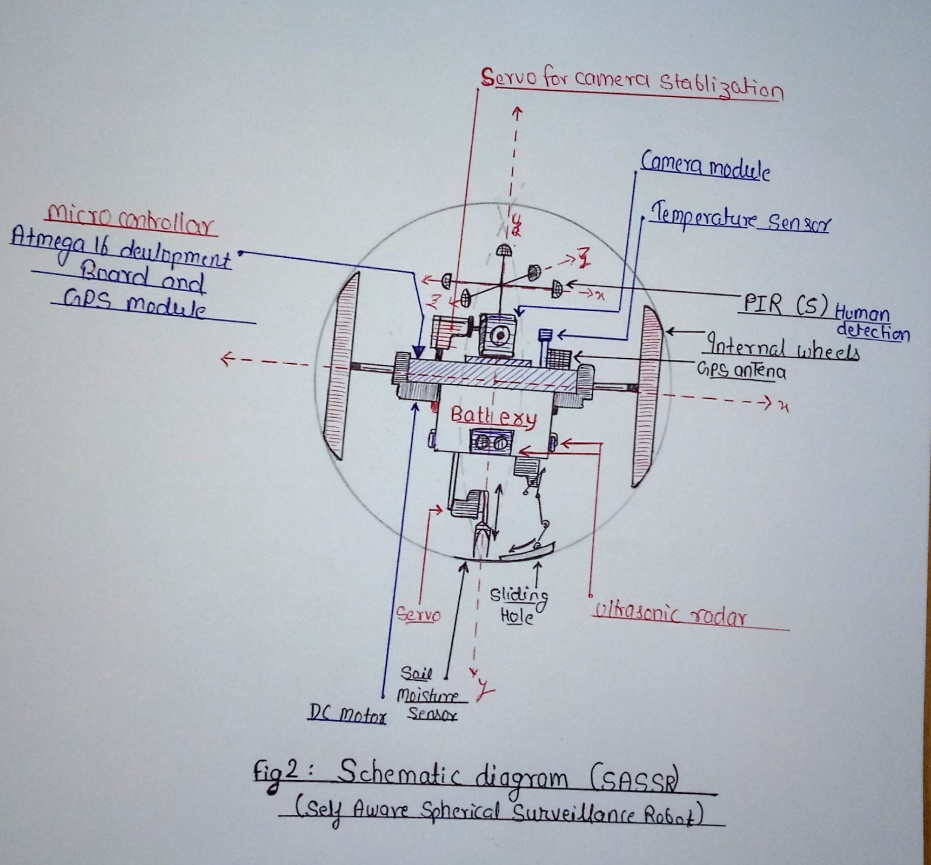 Servo for camera Stablization
Camera module
Temperature Sensor
Micro controllar
Atmega 16 devlopment
Board and
GPS module
y
z
x
z
PIR (S) Human
detection
Internal wheels
GPS antena
x
Battery
Sliding
Hole
Servo
Ultrasonic radar
Soil
Moisture
Sensor
y
DC motor
Fig 2 : Schematic diagram (SASSR)
(Self Aware Spherical Surveillance Robot)